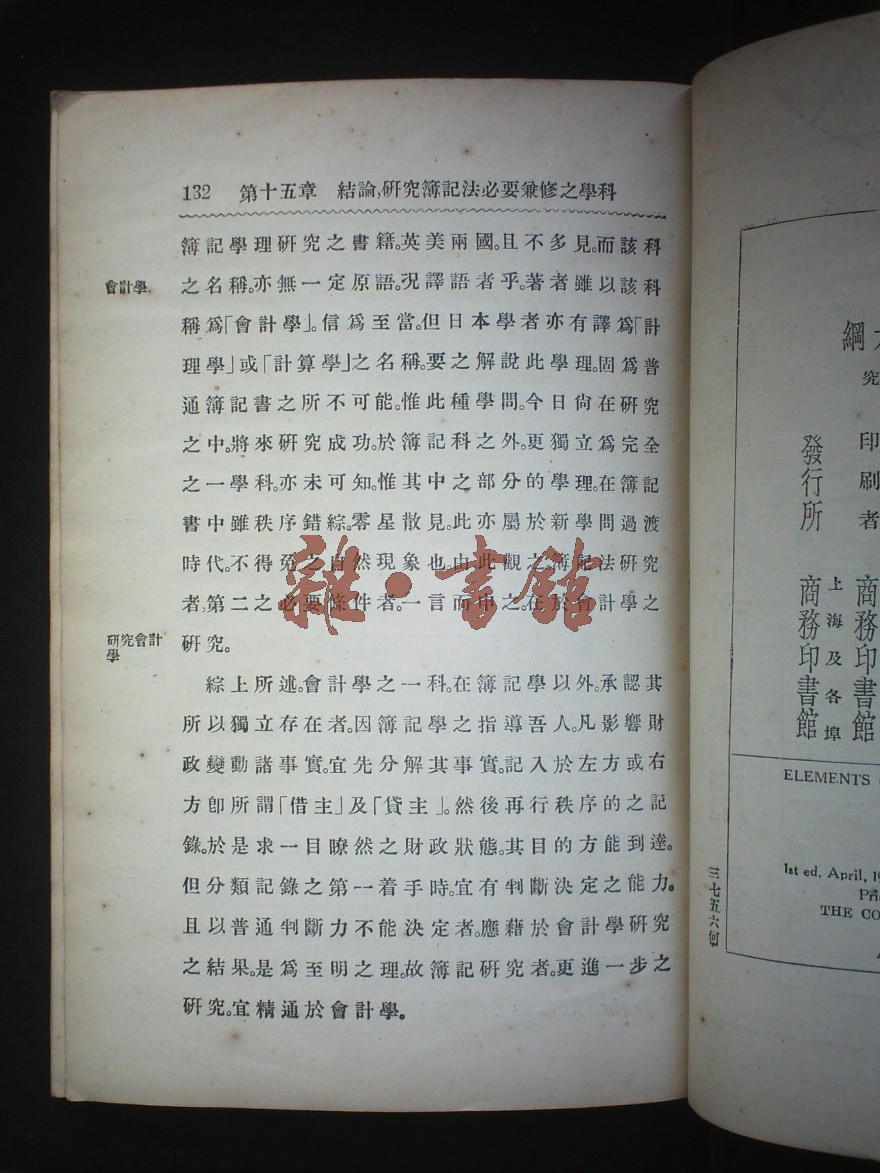 132 第十五章 結論,研究簿記法必要兼修之學科
簿記學理研究之書籍。英美兩國。且不多見。而該科
會計學
之名稱。亦無一定原語。況譯語者乎。著者雖以該科
稱爲「會計學」。信爲至當。但日本學者亦有譯爲「計
理學」或「計算學」之名稱。要之解說此學理。固爲普
通簿記書之所不可能。惟此種學問。今日尙在研究
之中。將來研究成功。於簿記科之外。更獨立爲完全
之一學科。亦未可知。惟其中之部分的學理。在簿記
書中雖秩序錯綜。零星散見。此亦屬於新學問過渡
時代。不得免之自然現象也。由此觀之。簿記法研究
者,第二之必要條件者。一言而申之。在於會計學之
研究會計
學
研究。
綜上所述。會計學之一科。在簿記學以外。承認其
所以獨立存在者。因簿記學之指導吾人。凡影響財
政變動諸事實。宜先分解其事實。記入於左方或右
方卽所謂「借主」及「貸主」。然後再行秩序的之記
錄。於是求一目瞭然之財政狀態。其目的方能到達。
但分類記錄之第一着手時。宜有判斷決定之能力。
且以普通判斷力不能決定者。應藉於會計學研究
之結果。是爲至明之理。故簿記研究者。更進一步之
研究。宜精通於會計學。
雜·書館
綱
究
印刷者
發行所
商務印書館
上海及各埠
商務印書館
ELEMENTS
1st ed. April, 19
THE CO
三七五六何